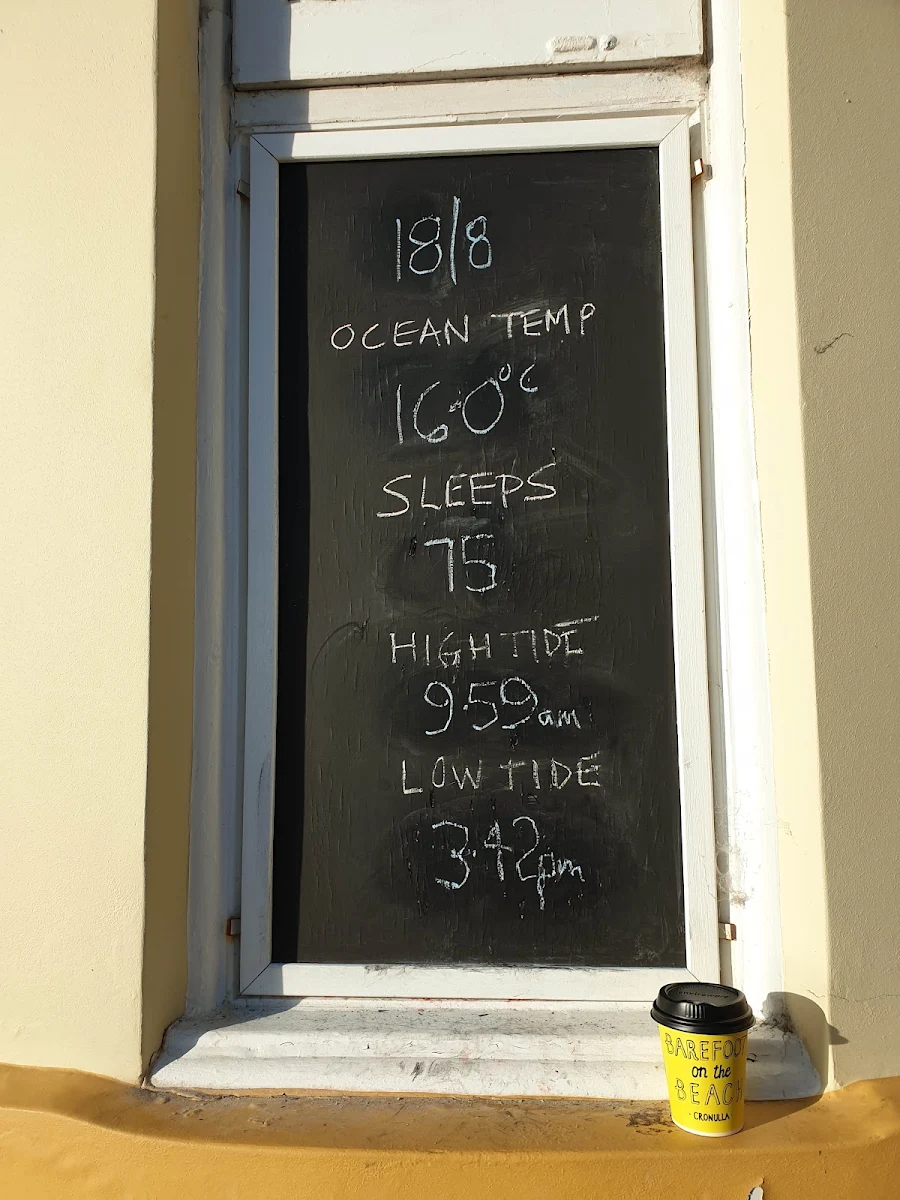 18/8
OCEAN TEMP
16.0°C
SLEEPS
75
HIGH TIDE
9.59am
LOW TIDE
3.42pm
BAREFOOT
on the
BEACH
- CRONULLA